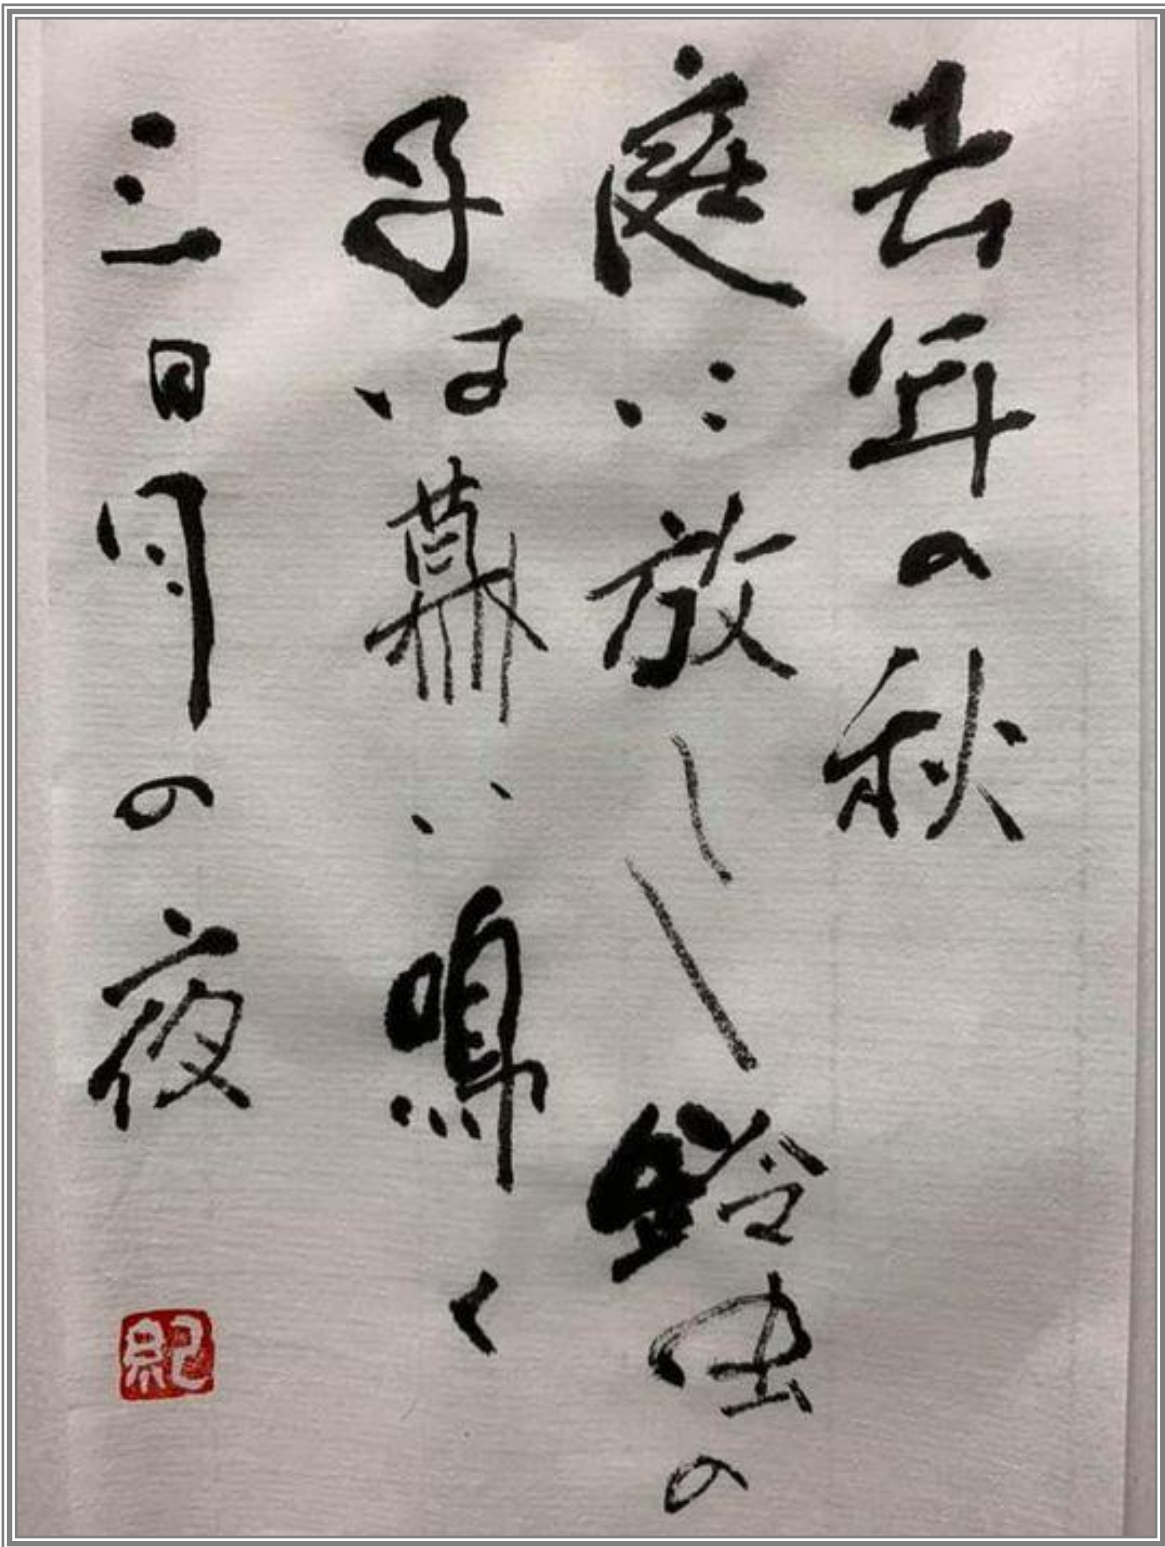 去年の秋
庭に放しし鈴虫の
子は幕い鳴く
三日月の夜
紀